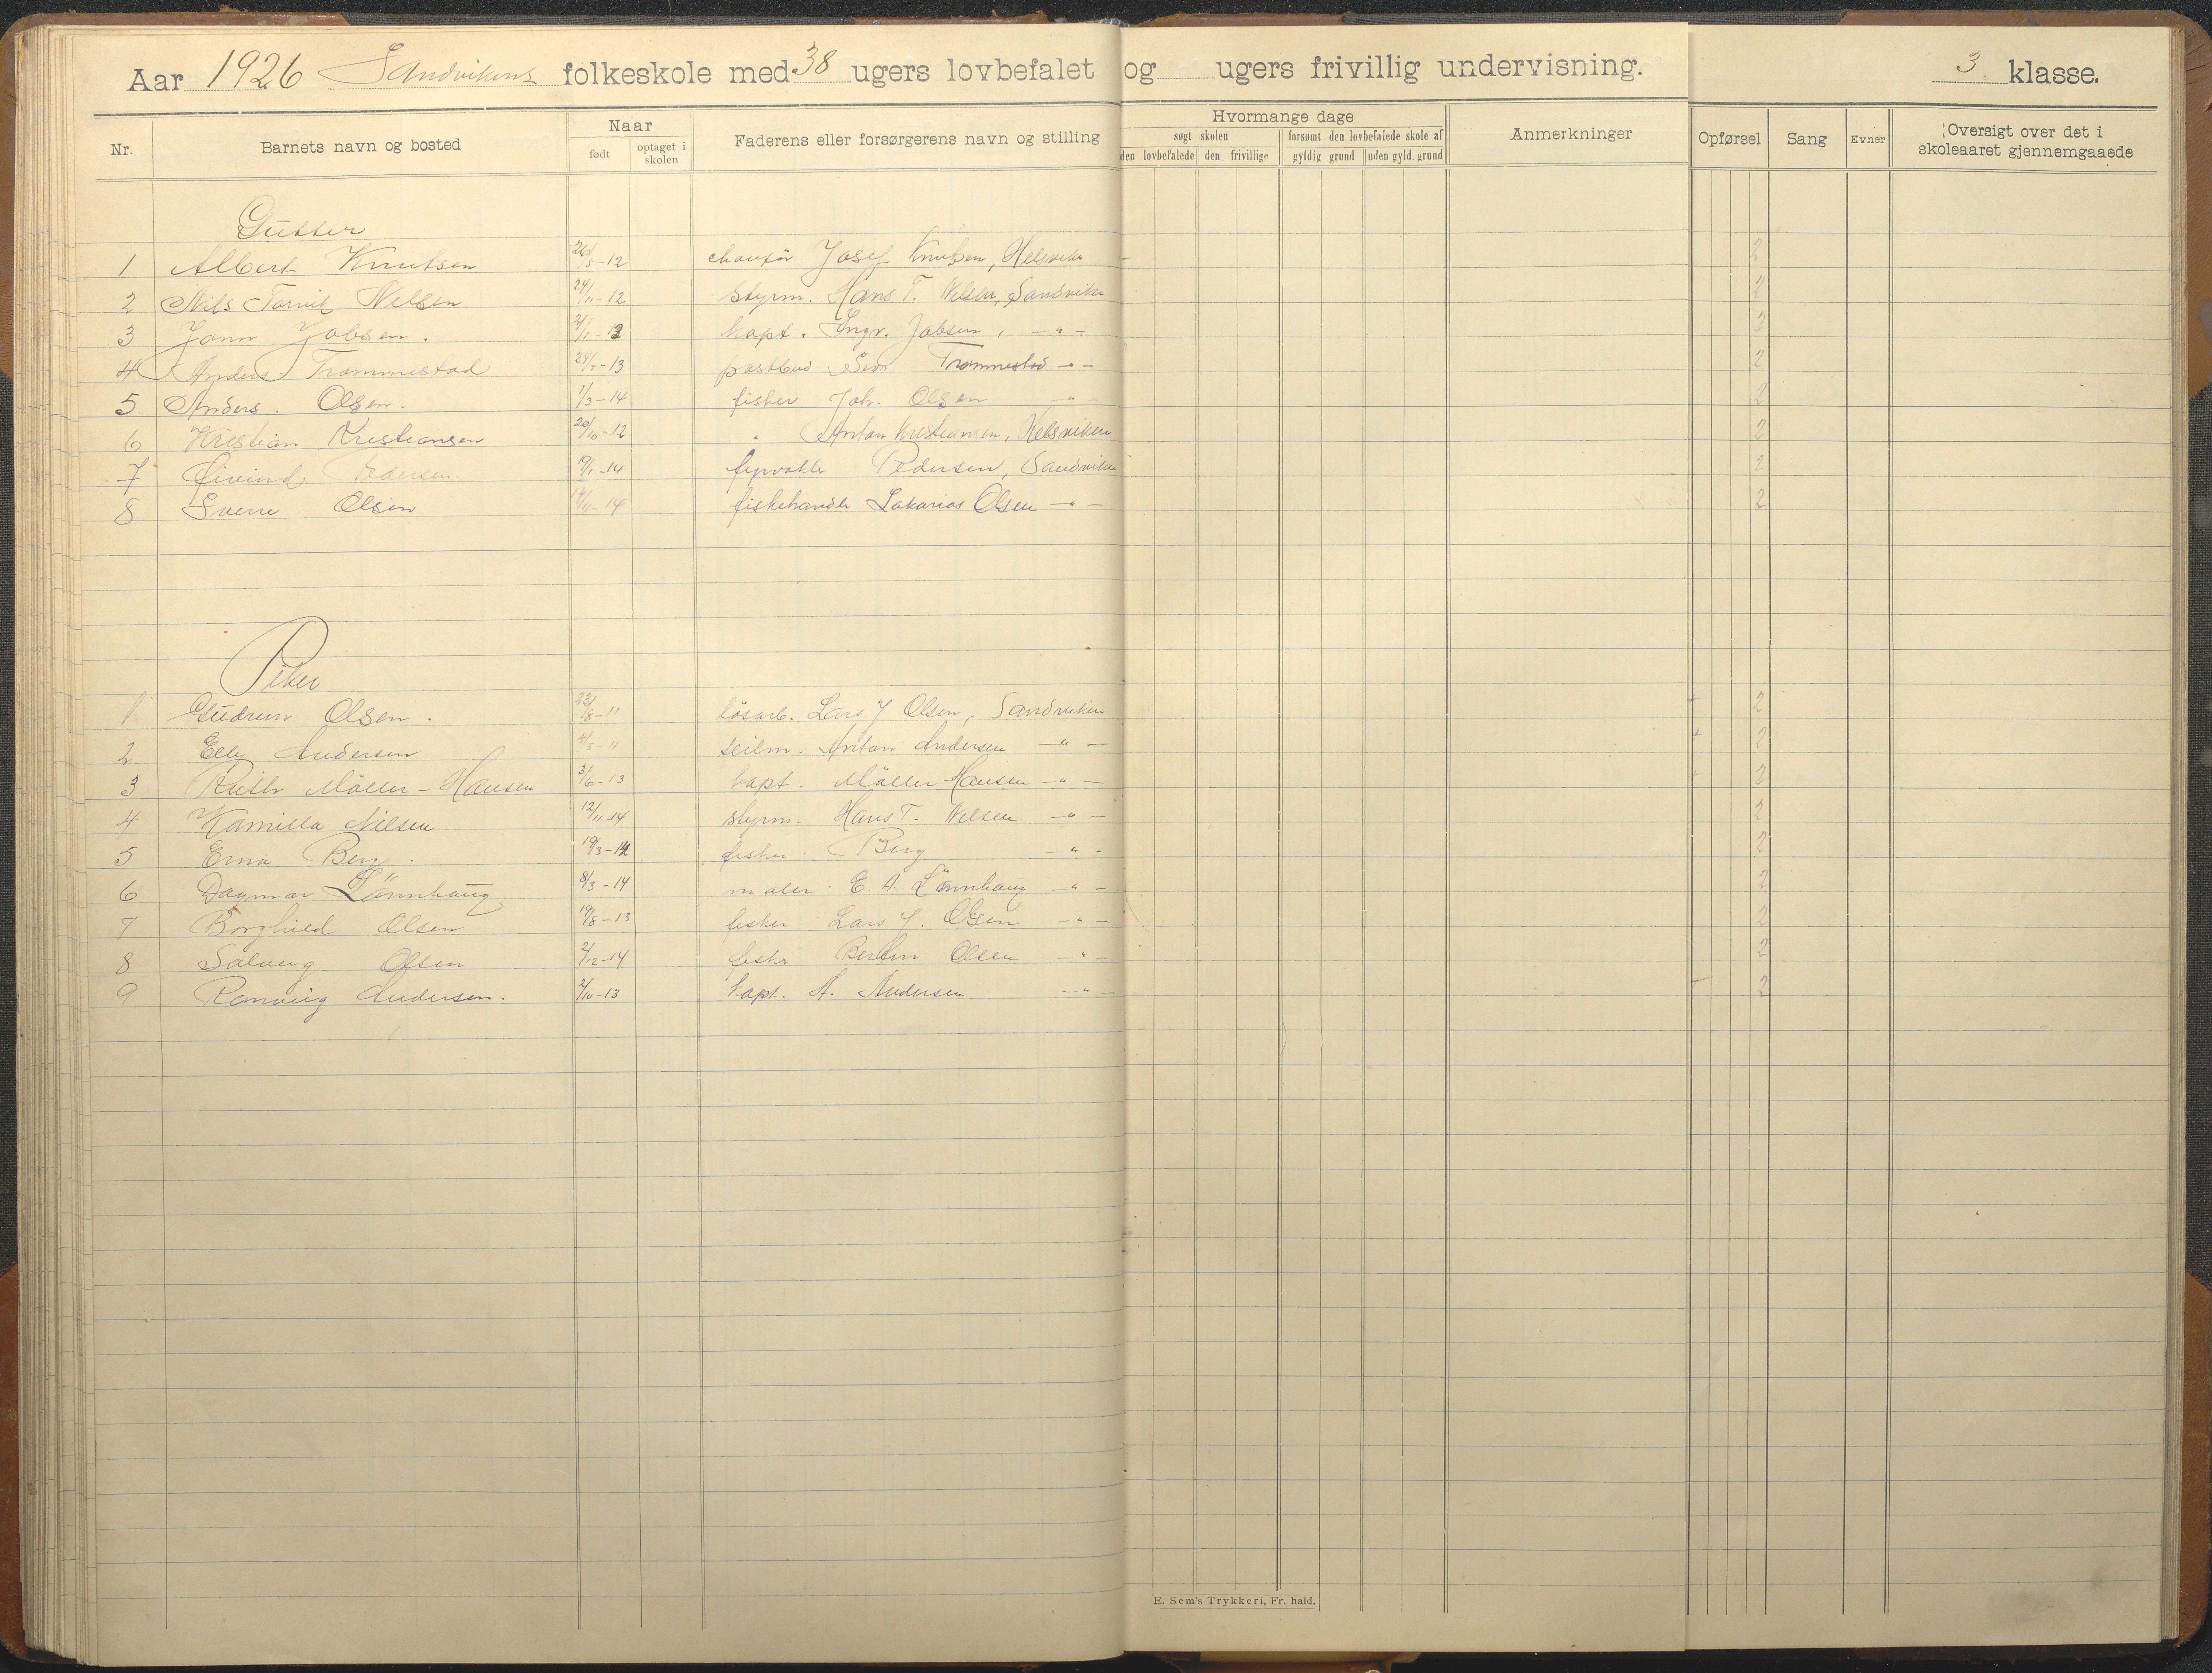 Aar 1926 Sandvikens folkeskole med 38 ugers lovbefalet og ugers frivillig undervisning. 3. klasse.
Nr. Barnets navn og bosted Naar født optaget i skolen Faderens eller forsørgerens navn og stilling Hvormange dage søgt skolen den lovbefalede den frivillige forsømt den lovbefalede skole af gyldig grund uden gyld. grund Anmerkninger Opførsel Sang Evner Oversigt over det i skoleaaret gjennemgaaede
Gutter
1 Albert Knutsen 26/8-12 chauför Josef Knutsen, Helsviken 2
2 Nils Torvil Nilsen 24/11-12 styrm. Hans T. Nilsen, Sandviken 2
3 Jonn Jobsen. 2/1-13 kapt. Ingv. Jobsen, -"- 2
4 Anders Trommestad 28/7-13 postbud Trommestad -"- 2
5 Anders. Olsen. 1/3-14 fisker Joh. Olsen -"- 2
6 Kristian Kristiansen 20/10-12 " Anton Kristiansen, Helsviken 2
7 Øivind Pedersen 19/1-14 fyrvakte Pedersen, Sandviken 2
8 Sverre Olsen 14/11-14 fiskehandle Sakarias Olsen -"- 2
Piker
1 Gudrun Olsen. 23/8-11 lösarb. Lars J Olsen, Sandviken 2
2 Elly Andersen 4/5-11 seilm. Anton Andersen -"- 2
3 Ruth Möller-Hansen 3/6-13 kapt. Möller-Hansen -"- 2
4 Kamilla Nilsen 12/11-14 styrm. Hans T. Nilsen -"- 2
5 Erna Berg. 19/3-14 fisker. Berg -"- 2
6 Dagmar Lönnhaug 8/3-14 maler E. A. Lönnhaug -"- 2
7 Borghild Olsen 19/8-13 fisker Lars J. Olsen -"- 2
8 Solveig Olsen 2/12-14 fisker Bertin Olsen -"- 2
9 Ranveig Andersen. 2/10-13 kapt. A. Andersen -"- 2
E. Sem's Trykkeri, Fr. hald.